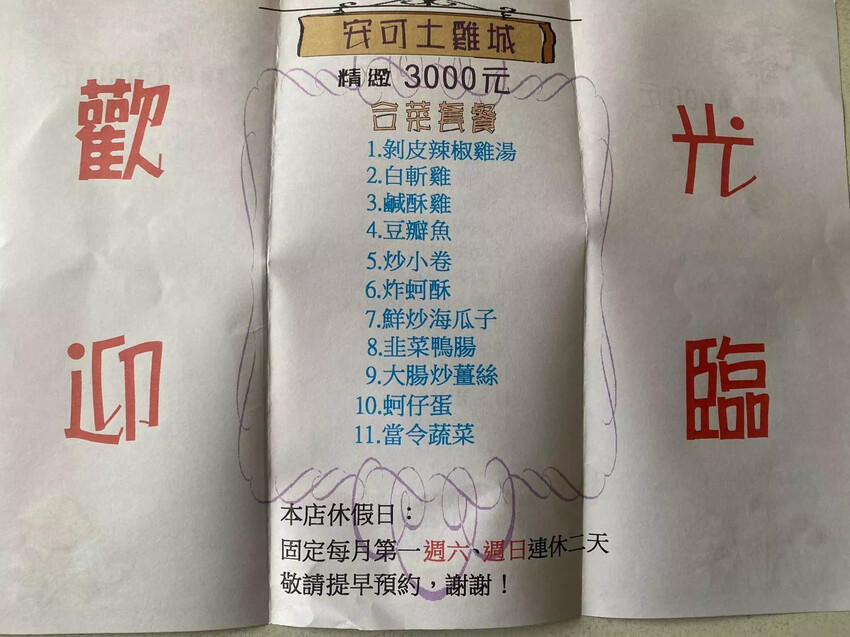 安可土雞城
精緻 3000元
合菜套餐
1.剝皮辣椒雞湯
2.白斬雞
3.鹹酥雞
4.豆瓣魚
5.炒小卷
6.炸蚵酥
7.鮮炒海瓜子
8.韭菜鴨腸
9.大腸炒薑絲
10.蚵仔蛋
11.當令蔬菜
本店休假日：
固定每月第一週六、週日連休二天
敬請提早預約，謝謝！
歡迎
光臨